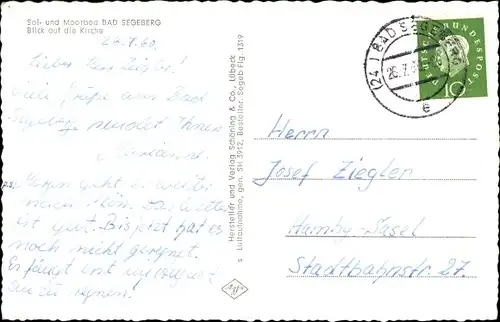 Sol- und Moorbad BAD SEGEBERG
Blick auf die Kirche
26.7.60.
Lieber Herr Ziegler!
Viele Grüße aus Bad
Segeberg sendet Ihnen
P.S.
ist gut. Bis jetzt hat es
noch nicht geregnet.
Er fängt erst
an zu regnen!
Hersteller und Verlag Schöning & Co., Lübeck
s Luftaufnahme, gen. SH 3912, Bestellnr. Segeb Flg. 1319
(24) BAD SEGEBERG
26.7.60
e
DEUTSCHE BUNDESPOST
10
Herrn
Josef Ziegler
Hamburg-Sasel
Stadtbahnstr. 27.